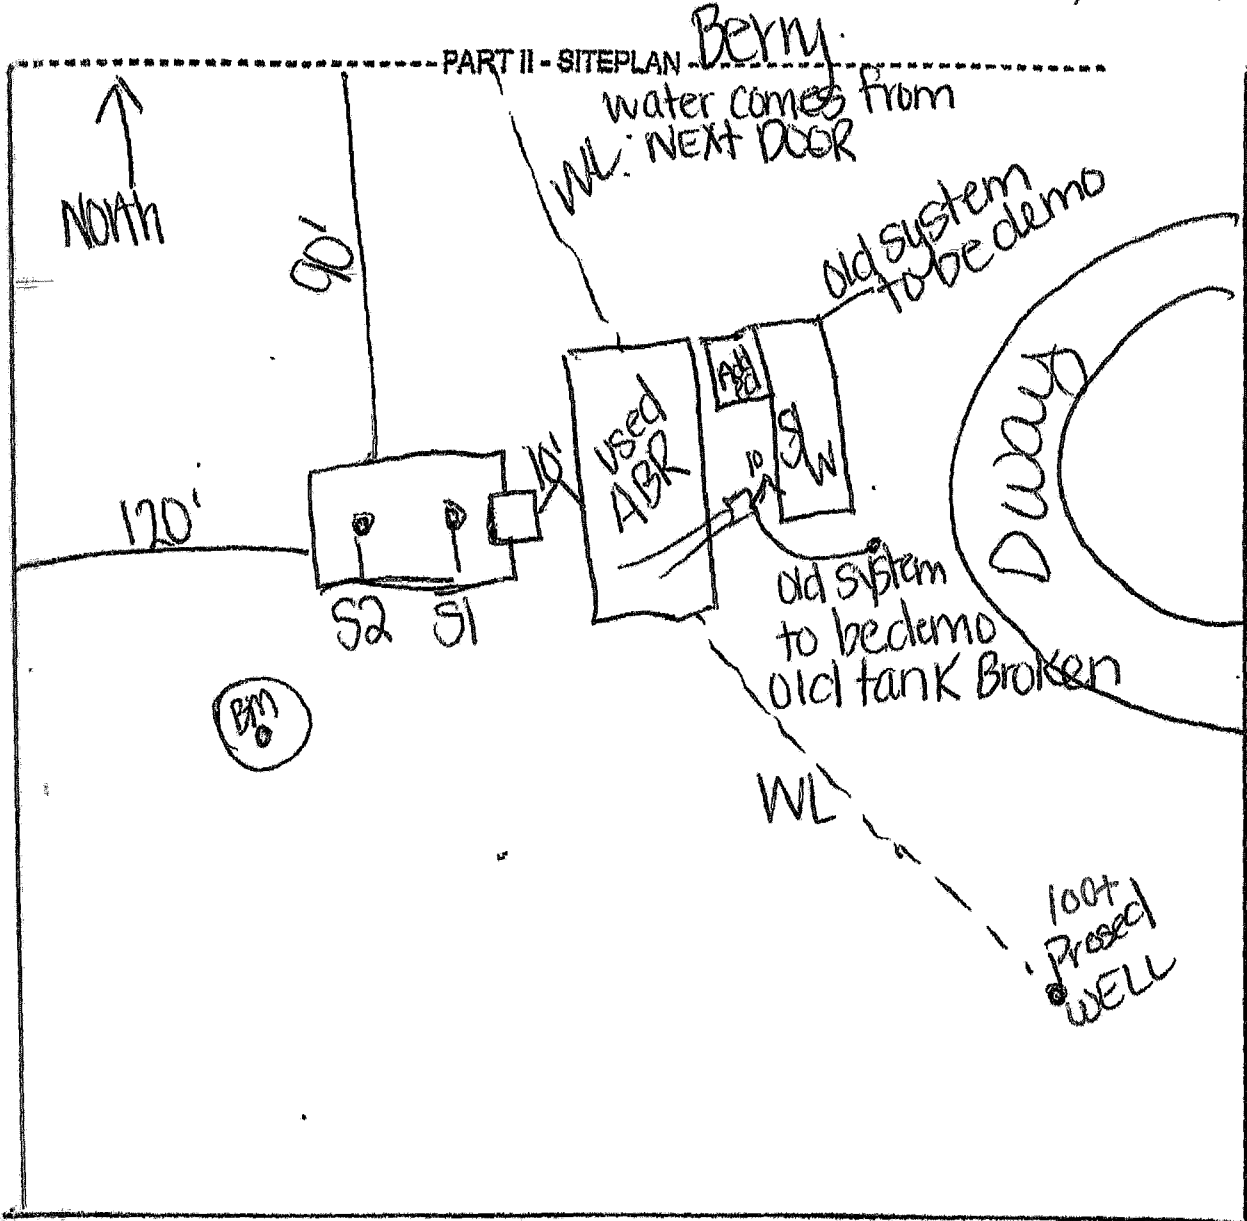 Berry.
PART II - SITEPLAN
water comes from
NEXT DOOR
WL
North
90'
old system
to be demo
Dway
used
ABR
10'
10
SW
120'
S2 S1
old system
to be demo
old tank Broken
BM
WL
100+
Prosed
WELL